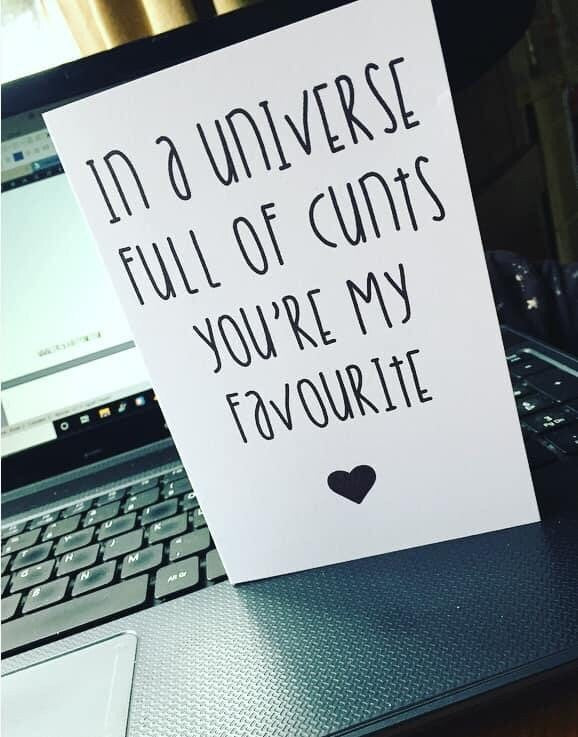 In a UnIVERSE
FULL OF CUntS
YOU'RE MY
FaVOURItE
Alt Gr